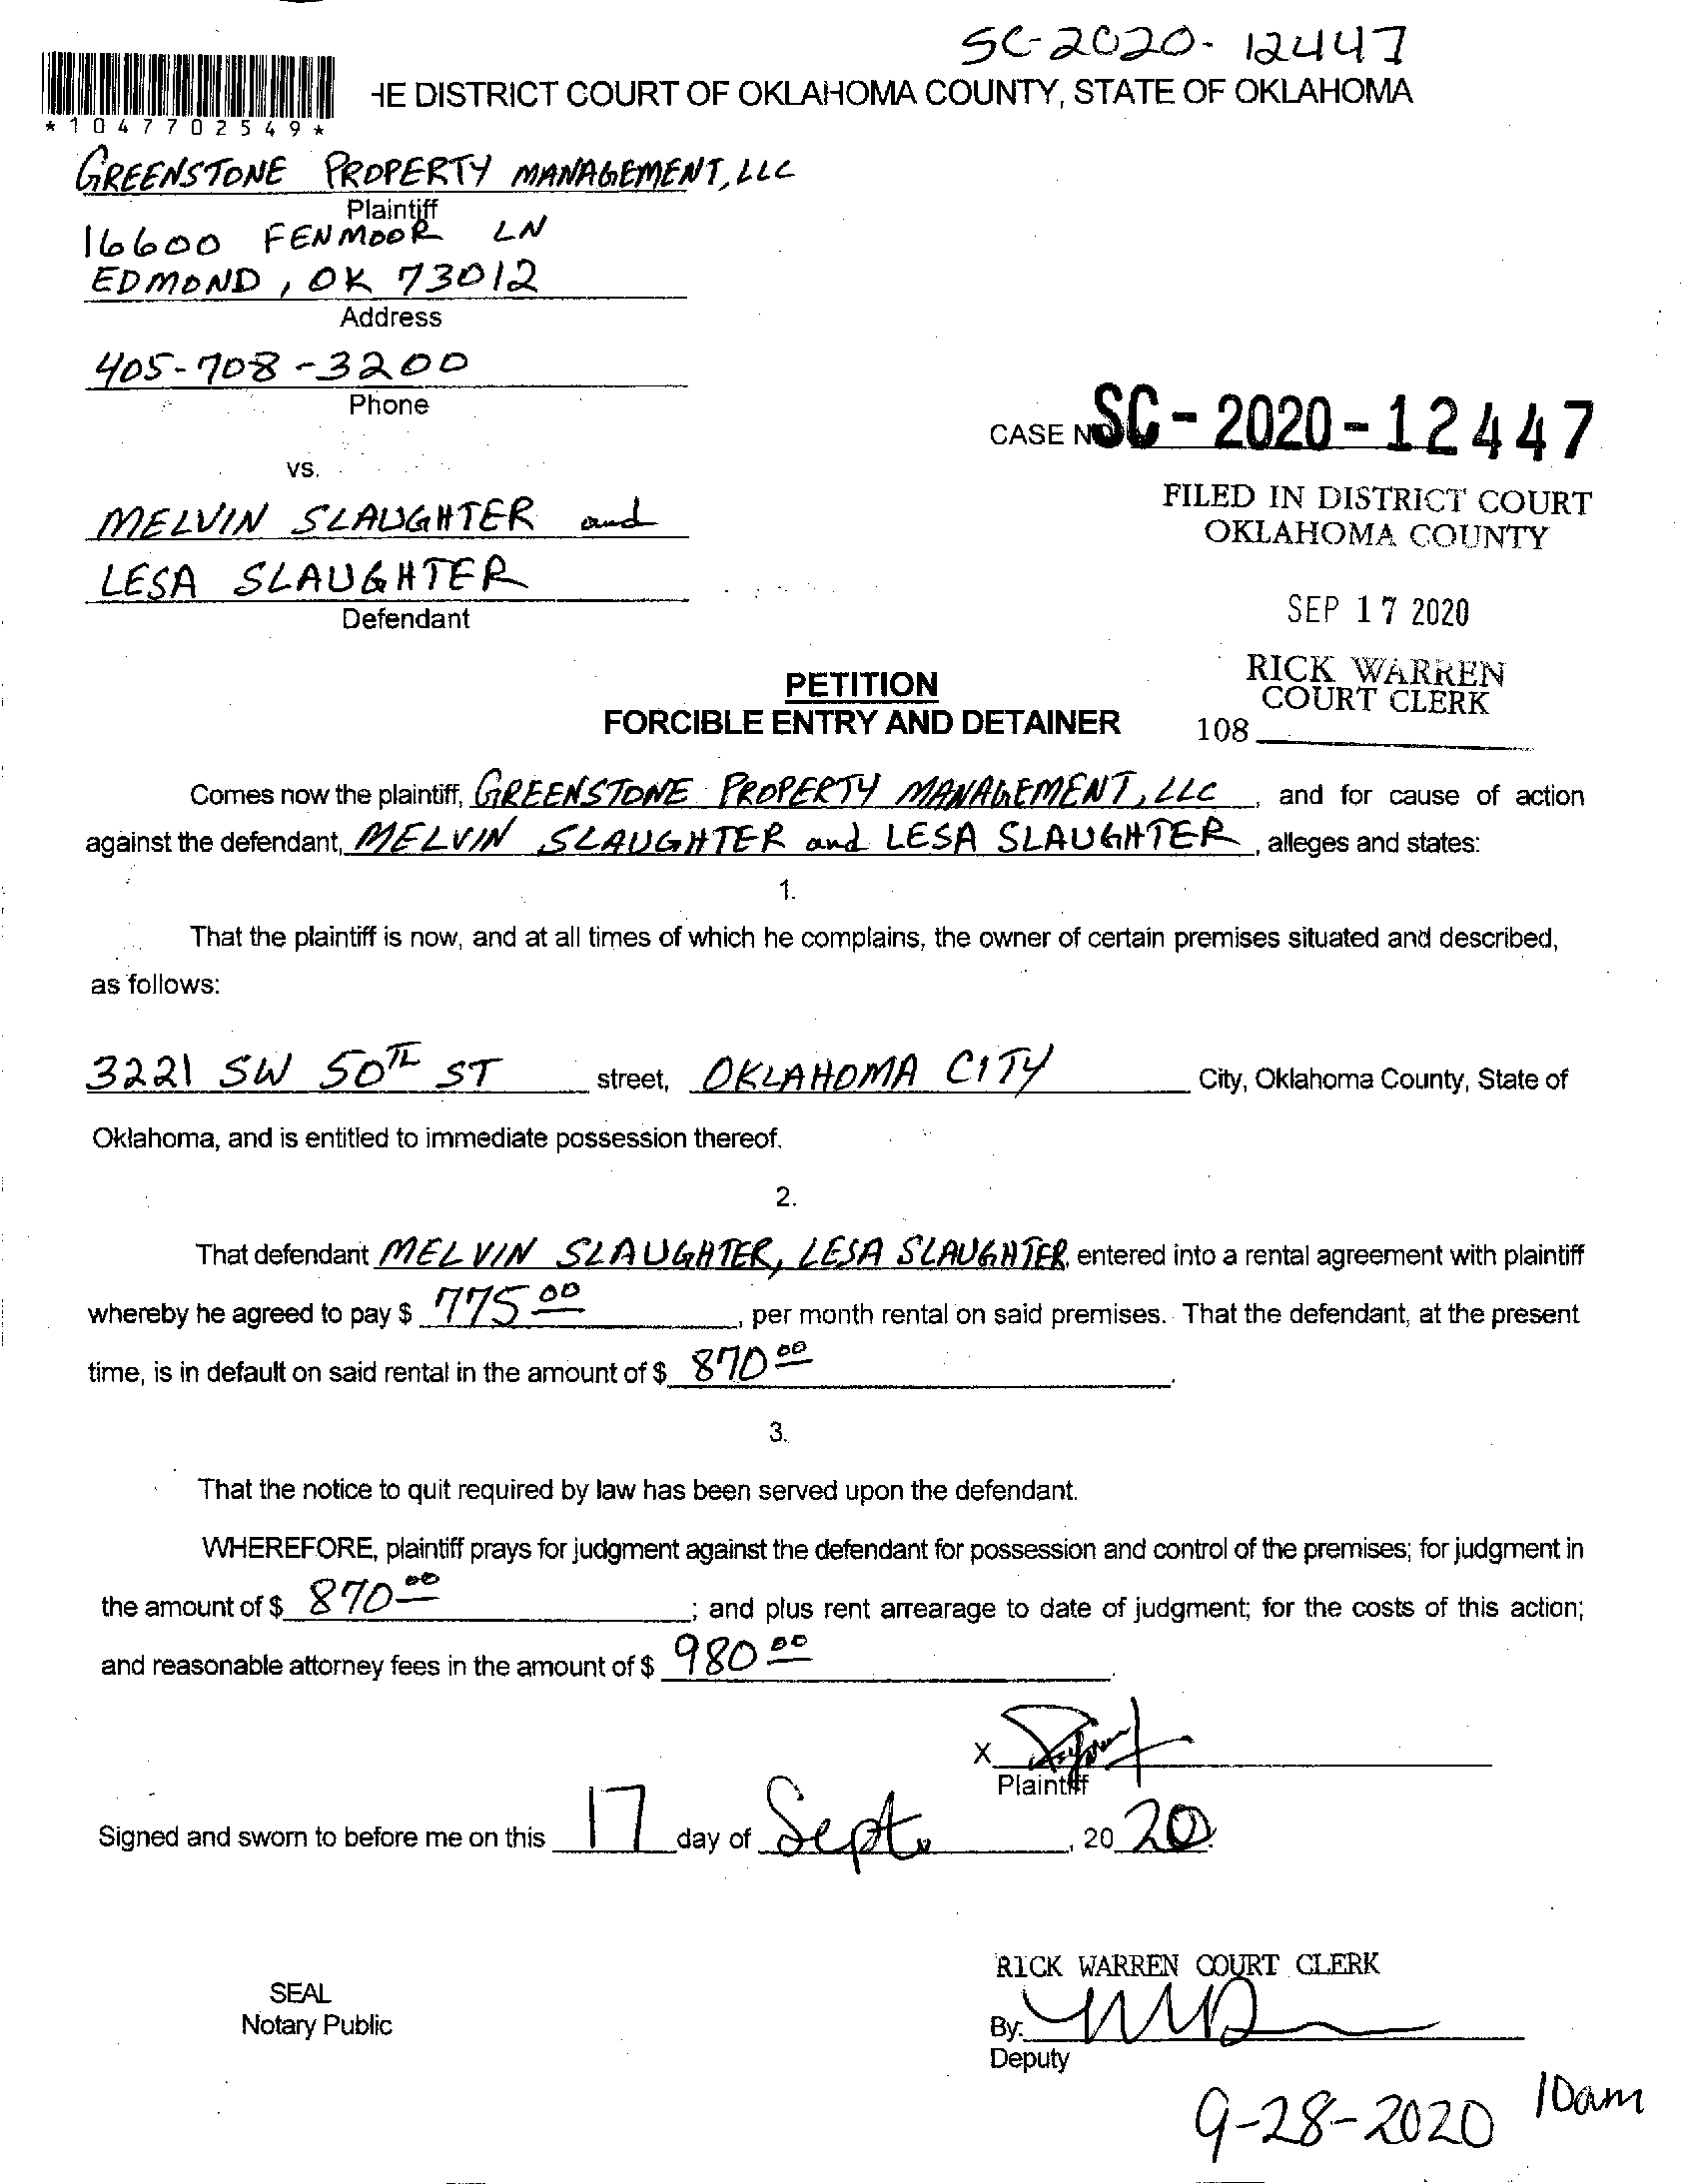 SC-2020-12447
HE DISTRICT COURT OF OKLAHOMA COUNTY, STATE OF OKLAHOMA
*1047702549*
GREENSTONE PROPERTY MANAGEMENT, LLC
Plaintiff
16600 FENMOOR LN
EDMOND, OK 73012
Address
405-708-3200
Phone
CASE NO. SC-2020-12447
vs.
MELVIN SLAUGHTER and
LESA SLAUGHTER
Defendant
FILED IN DISTRICT COURT
OKLAHOMA COUNTY
SEP 17 2020
RICK WARREN
COURT CLERK
108
PETITION
FORCIBLE ENTRY AND DETAINER
Comes now the plaintiff, GREENSTONE PROPERTY MANAGEMENT, LLC, and for cause of action
against the defendant, MELVIN SLAUGHTER and LESA SLAUGHTER, alleges and states:
1.
That the plaintiff is now, and at all times of which he complains, the owner of certain premises situated and described,
as follows:
3221 SW 50TH ST street, OKLAHOMA CITY City, Oklahoma County, State of
Oklahoma, and is entitled to immediate possession thereof.
2.
That defendant MELVIN SLAUGHTER, LESA SLAUGHTER, entered into a rental agreement with plaintiff
whereby he agreed to pay $ 775 00, per month rental on said premises. That the defendant, at the present
time, is in default on said rental in the amount of $ 870 00.
3.
That the notice to quit required by law has been served upon the defendant.
WHEREFORE, plaintiff prays for judgment against the defendant for possession and control of the premises; for judgment in
the amount of $ 870 00; and plus rent arrearage to date of judgment; for the costs of this action;
and reasonable attorney fees in the amount of $ 980 00.
X
Plaintiff
Signed and sworn to before me on this 17 day of Sept., 20 20.
RICK WARREN COURT CLERK
SEAL
Notary Public
By:
Deputy
9-28-2020 10am